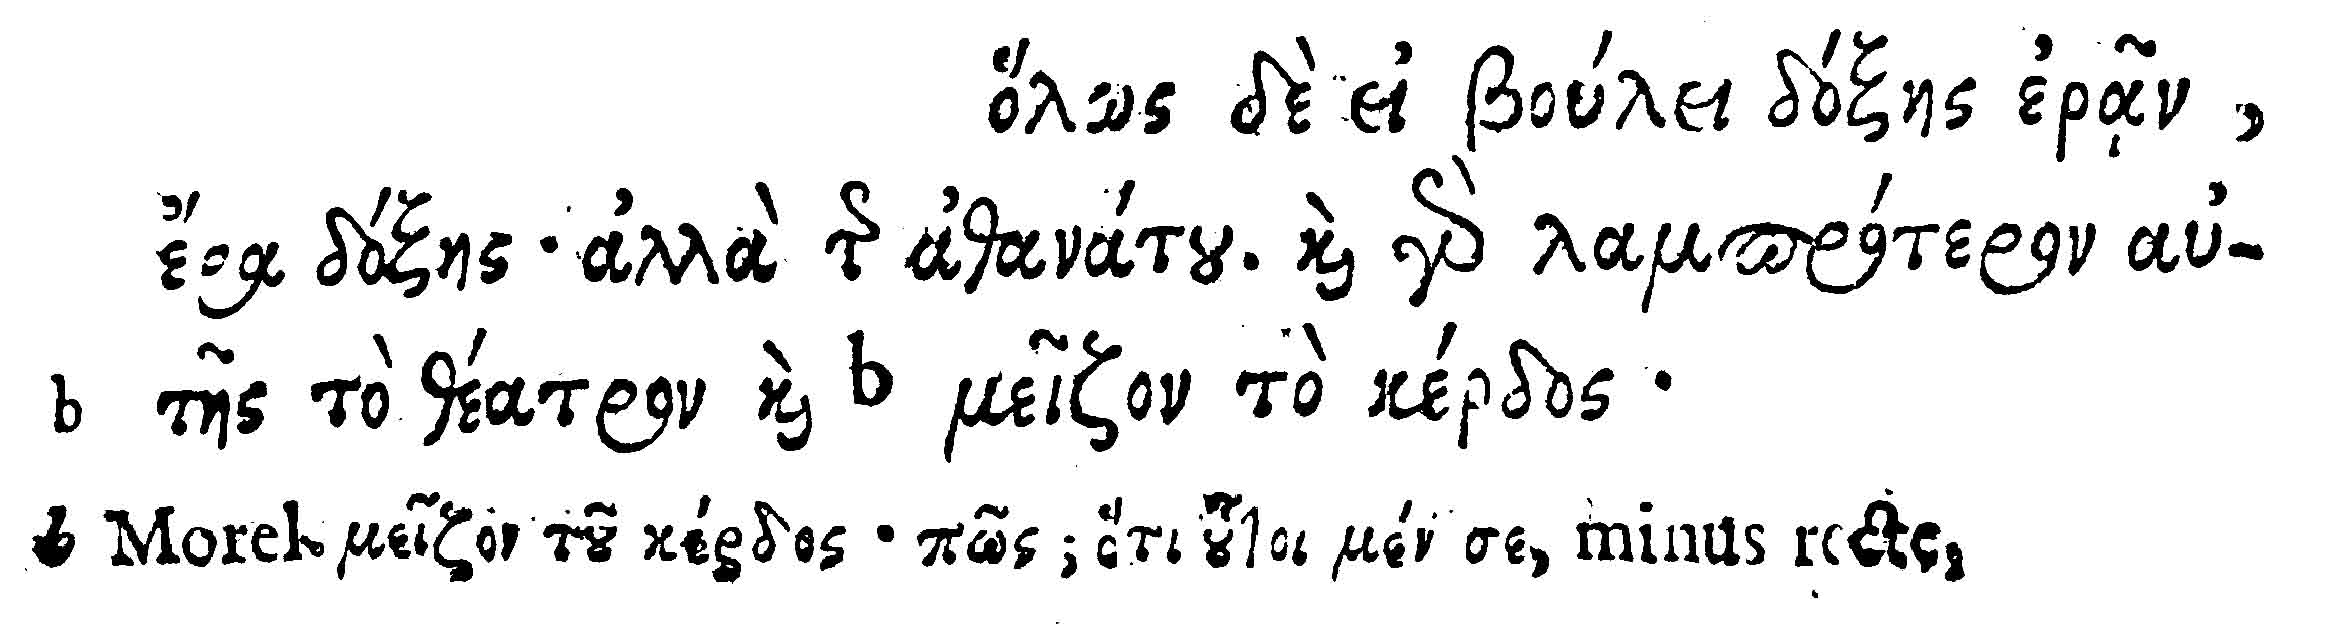 ὅλως δὲ εἰ βούλει δόξης ἐρᾷν,
ἔρα δόξης· ἀλλὰ τ͂ ἀθανάτȣ. ϗ̀ γὸ λαμπρότερον αὐ-
b τῆς τὸ θέατρον ϗ̀ b μεῖζον τὸ κέρδος·
b Morel. μεῖζον τȣ͂ κέρδος· πῶς; ὅτι ȣ͗͂τοι μέν σε, minus recte,